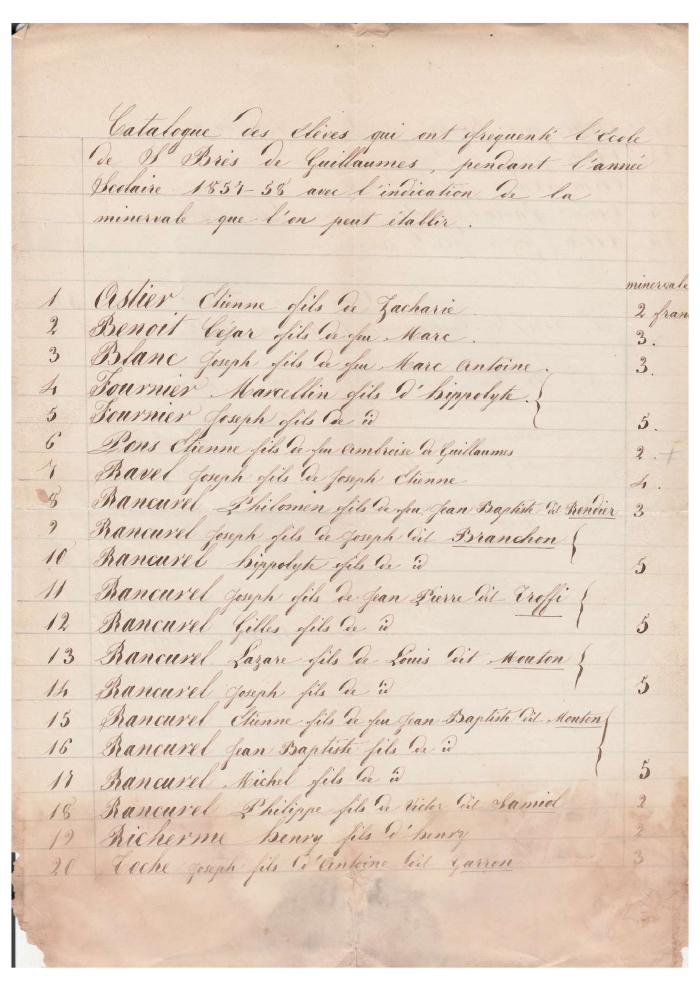 Catalogue des élèves qui ont frequenté l'école
de St Brès de Guillaumes, pendant l'année
Scolaire 1857-58 avec l'indication de la
minervale que l'on peut établir.
minervale
1 Astier Etienne fils de Zacharie. 2 fran
2 Benoit César fils de feu Marc. 3.
3 Blanc Joseph fils de feu Marc Antoine. 3.
4 Fournier Marcellin fils d'hippolyte.
5 Fournier Joseph fils de id 5.
6 Pons Etienne fils de feu Ambroise de Guillaumes 2.
7 Ravel Joseph fils de Joseph Etienne 4.
8 Rancurel Philomen fils de feu Jean Baptiste dit Rendier 3
9 Rancurel Joseph fils de Joseph dit Branchon
10 Rancurel hippolyte fils de id 5
11 Rancurel Joseph fils de Jean Pierre dit Troffi
12 Rancurel Gilles fils de id 5
13 Rancurel Lazare fils de Louis dit Mouton
14 Rancurel Joseph fils de id 5
15 Rancurel Etienne fils de feu Jean Baptiste dit Mouton
16 Rancurel Jean Baptiste fils de id
17 Rancurel Michel fils de id 5
18 Rancurel Philippe fils de Victor dit Samiol 2
19 Richerme henry fils d'henry 2
20 Toche Joseph fils d'Antoine dit Garron 3